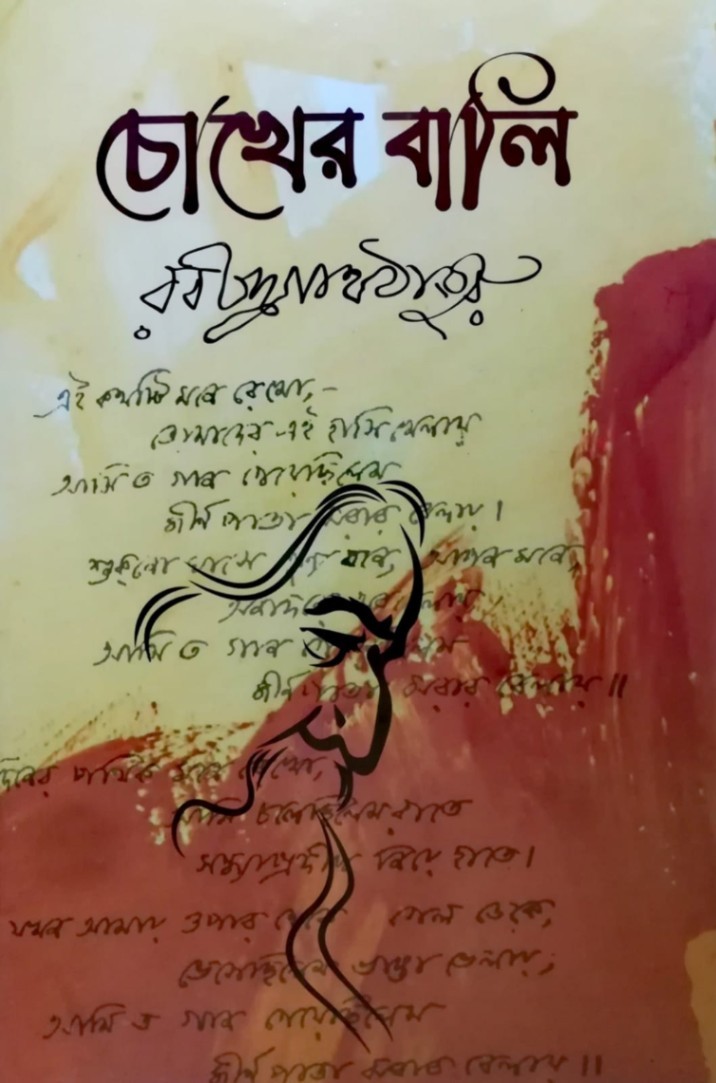 চোখের বালি
রবীন্দ্রনাথ ঠাকুর
এই কথাটি মনে রেখো,-
তোমাদের এই হাসি খেলায়
আমি ত গান গেয়েছিলেম
জীর্ণ পাতা ঝরার বেলায়।
শুকনো ঘাসে শূন্য বনে, আপন মনে,
অনাদরে অবহেলায়,
আমি ত গান গেয়েছিলেম
জীর্ণ পাতা ঝরার বেলায়॥
দিনের পথিক মনে রেখো,
আমি চলেছিলেম রাতে
সন্ধ্যাপ্রদীপ নিয়ে হাতে।
যখন আমায় ওপার থেকে গেল ডেকে,
ভেসেছিলেম ভাঙা ভেলায়;
আমি ত গান গেয়েছিলেম
জীর্ণ পাতা ঝরার বেলায়॥